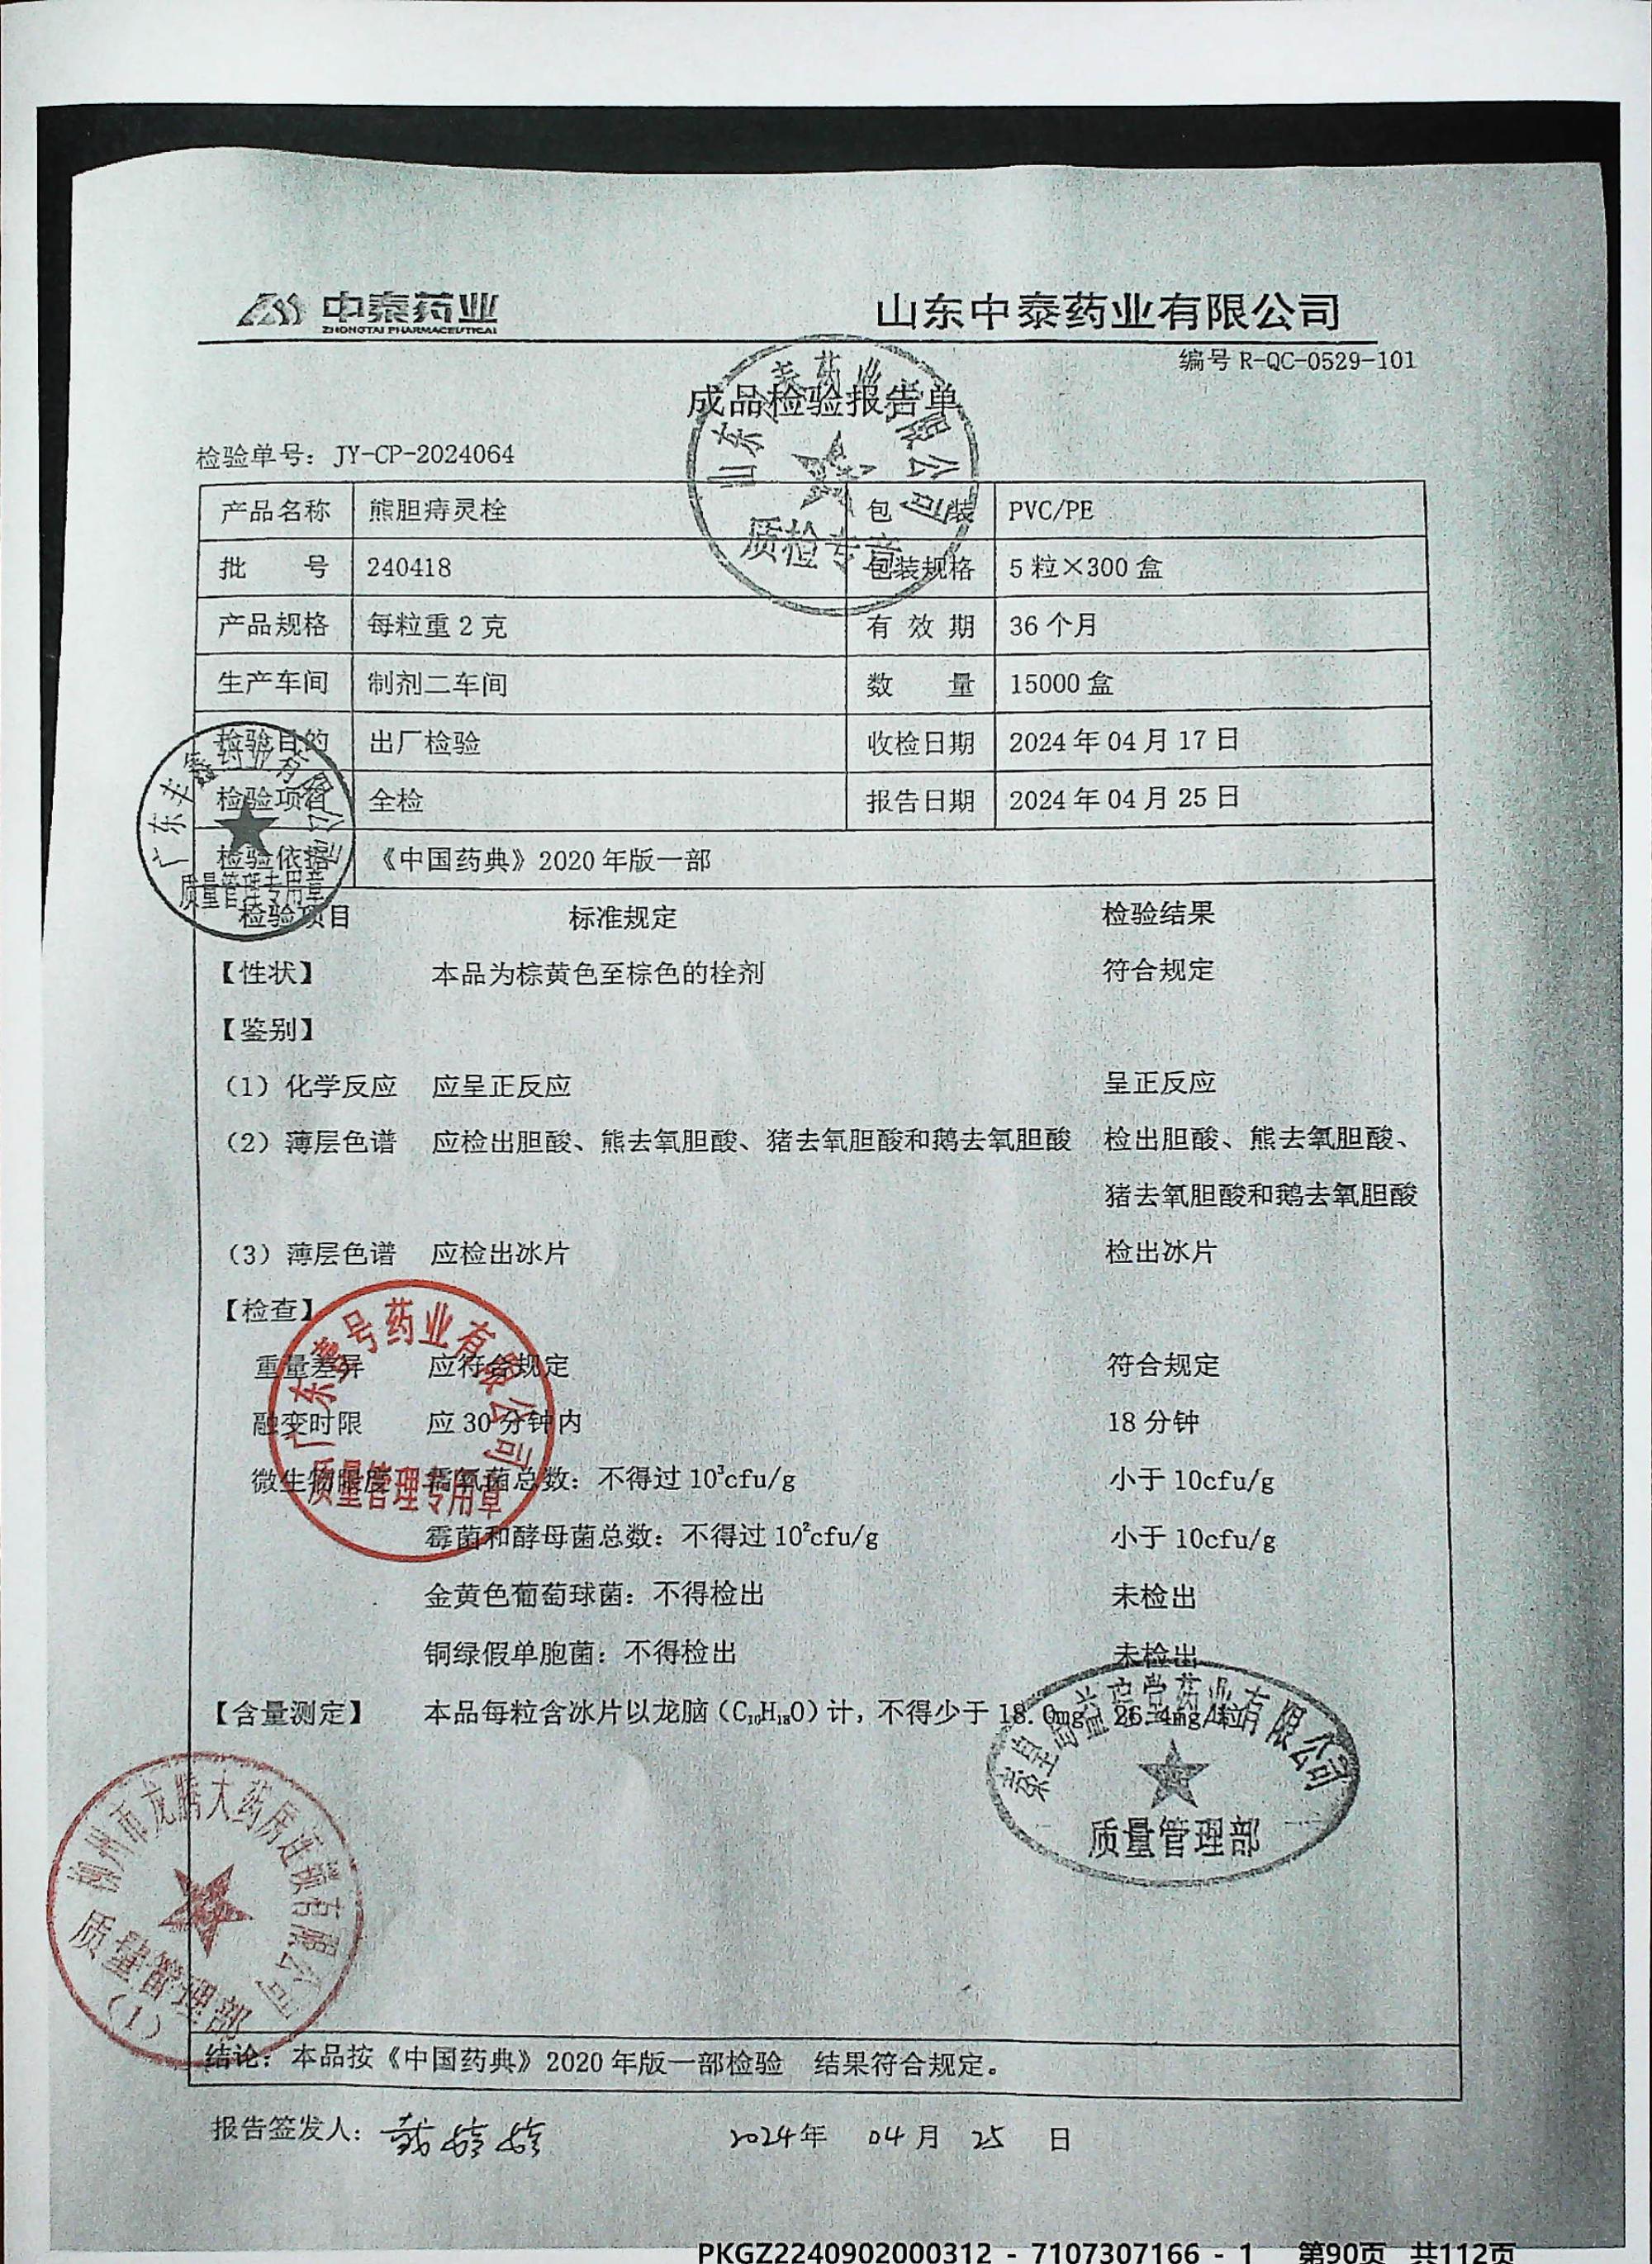 中泰药业 山东中泰药业有限公司
ZHONGTAI PHARMACEUTICAL
编号 R-QC-0529-101
成品检验报告单
山东中泰药业有限公司
质检专用章
检验单号：JY-CP-2024064
产品名称 熊胆痔灵栓 包装 PVC/PE
批号 240418 包装规格 5 粒×300 盒
产品规格 每粒重 2 克 有效期 36 个月
生产车间 制剂二车间 数量 15000 盒
检验目的 出厂检验 收检日期 2024 年 04 月 17 日
检验项目 全检 报告日期 2024 年 04 月 25 日
检验依据 《中国药典》2020 年版一部
药业有限公司
质量管理专用章
检验项目 标准规定 检验结果
【性状】 本品为棕黄色至棕色的栓剂 符合规定
【鉴别】
（1）化学反应 应呈正反应 呈正反应
（2）薄层色谱 应检出胆酸、熊去氧胆酸、猪去氧胆酸和鹅去氧胆酸 检出胆酸、熊去氧胆酸、
猪去氧胆酸和鹅去氧胆酸
（3）薄层色谱 应检出冰片 检出冰片
【检查】
重量差异 应符合规定 符合规定
融变时限 应 30 分钟内 18 分钟
微生物限度 需氧菌总数：不得过 10³cfu/g 小于 10cfu/g
霉菌和酵母菌总数：不得过 10²cfu/g 小于 10cfu/g
金黄色葡萄球菌：不得检出 未检出
铜绿假单胞菌：不得检出 未检出
【含量测定】 本品每粒含冰片以龙脑（C₁₀H₁₈O）计，不得少于 18.0mg 26.4mg/粒
号药业有限公司
质量管理专用章
药业有限公司
质量管理部
市龙腾大药房连锁有限公司
质量管理部
（1）
结论：本品按《中国药典》2020 年版一部检验 结果符合规定。
报告签发人： 2024年 04月 25 日
PKGZ2240902000312 - 7107307166 - 1 第90页 共112页